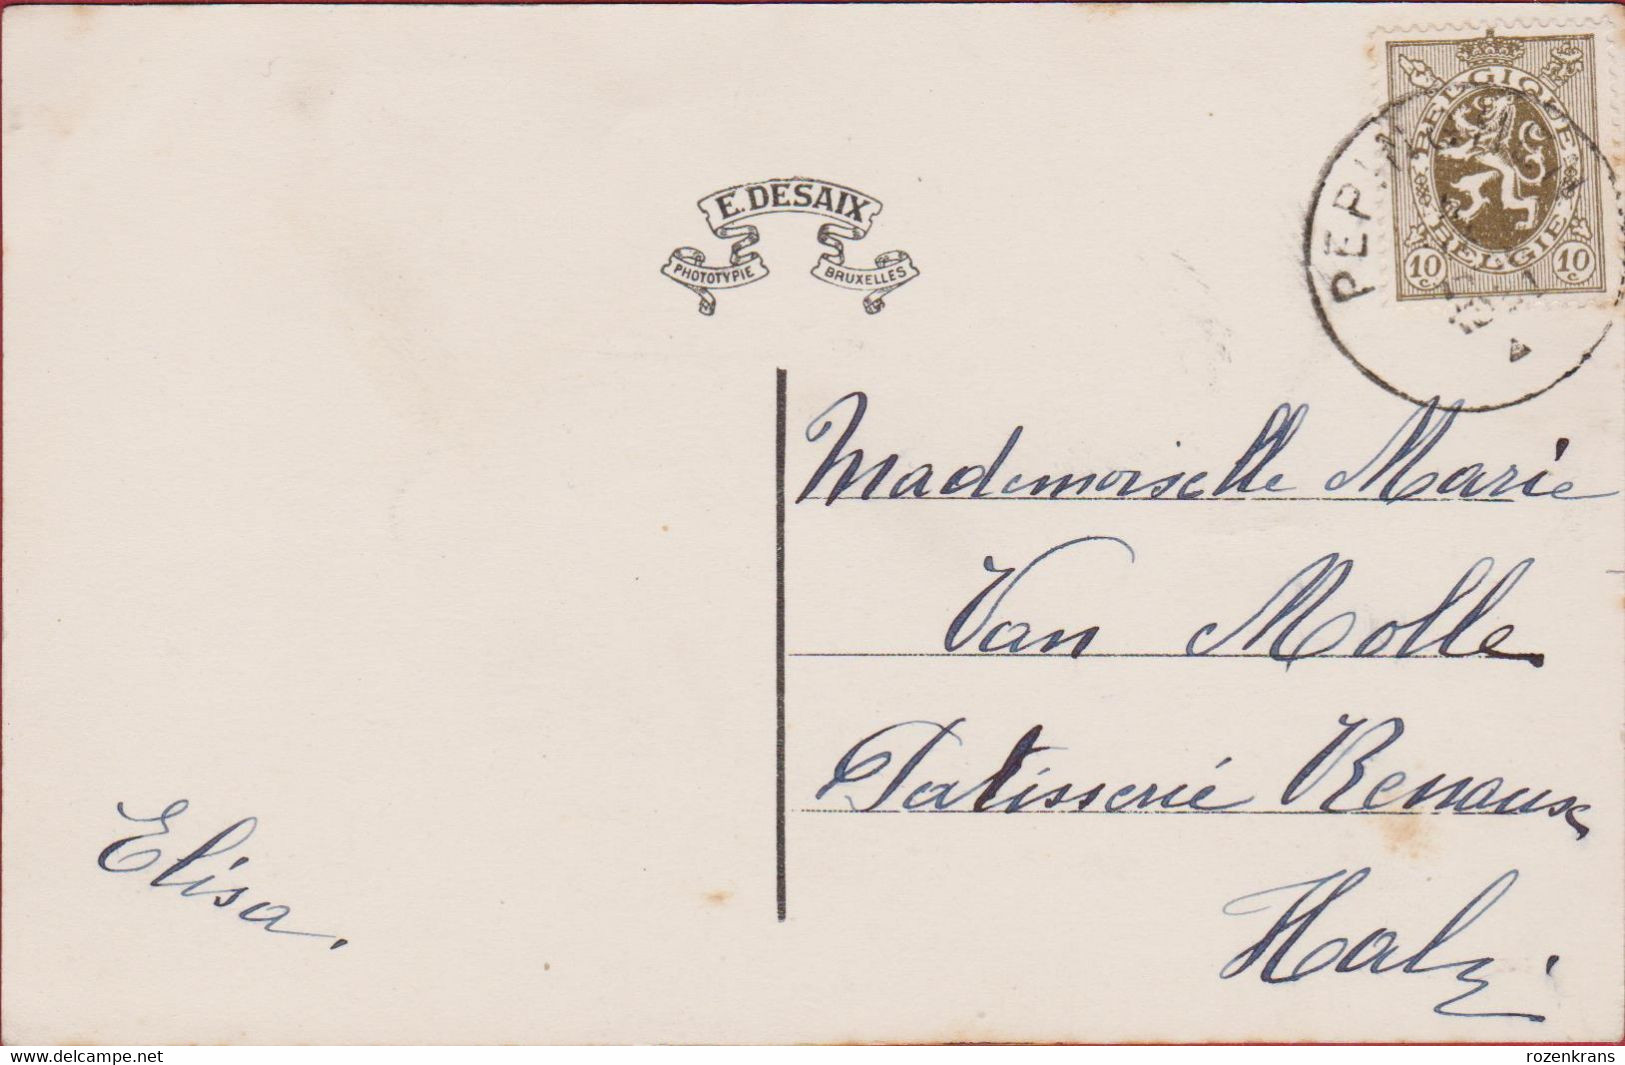 BELGIQUE
BELGIE
10 c 10 c
PEPINGEN
E. DESAIX
PHOTOTYPIE BRUXELLES
Mademoiselle Marie
Van Molle
Patisserie Renaux
Elisa.
Hal.
delcampe.net
rozenkrans